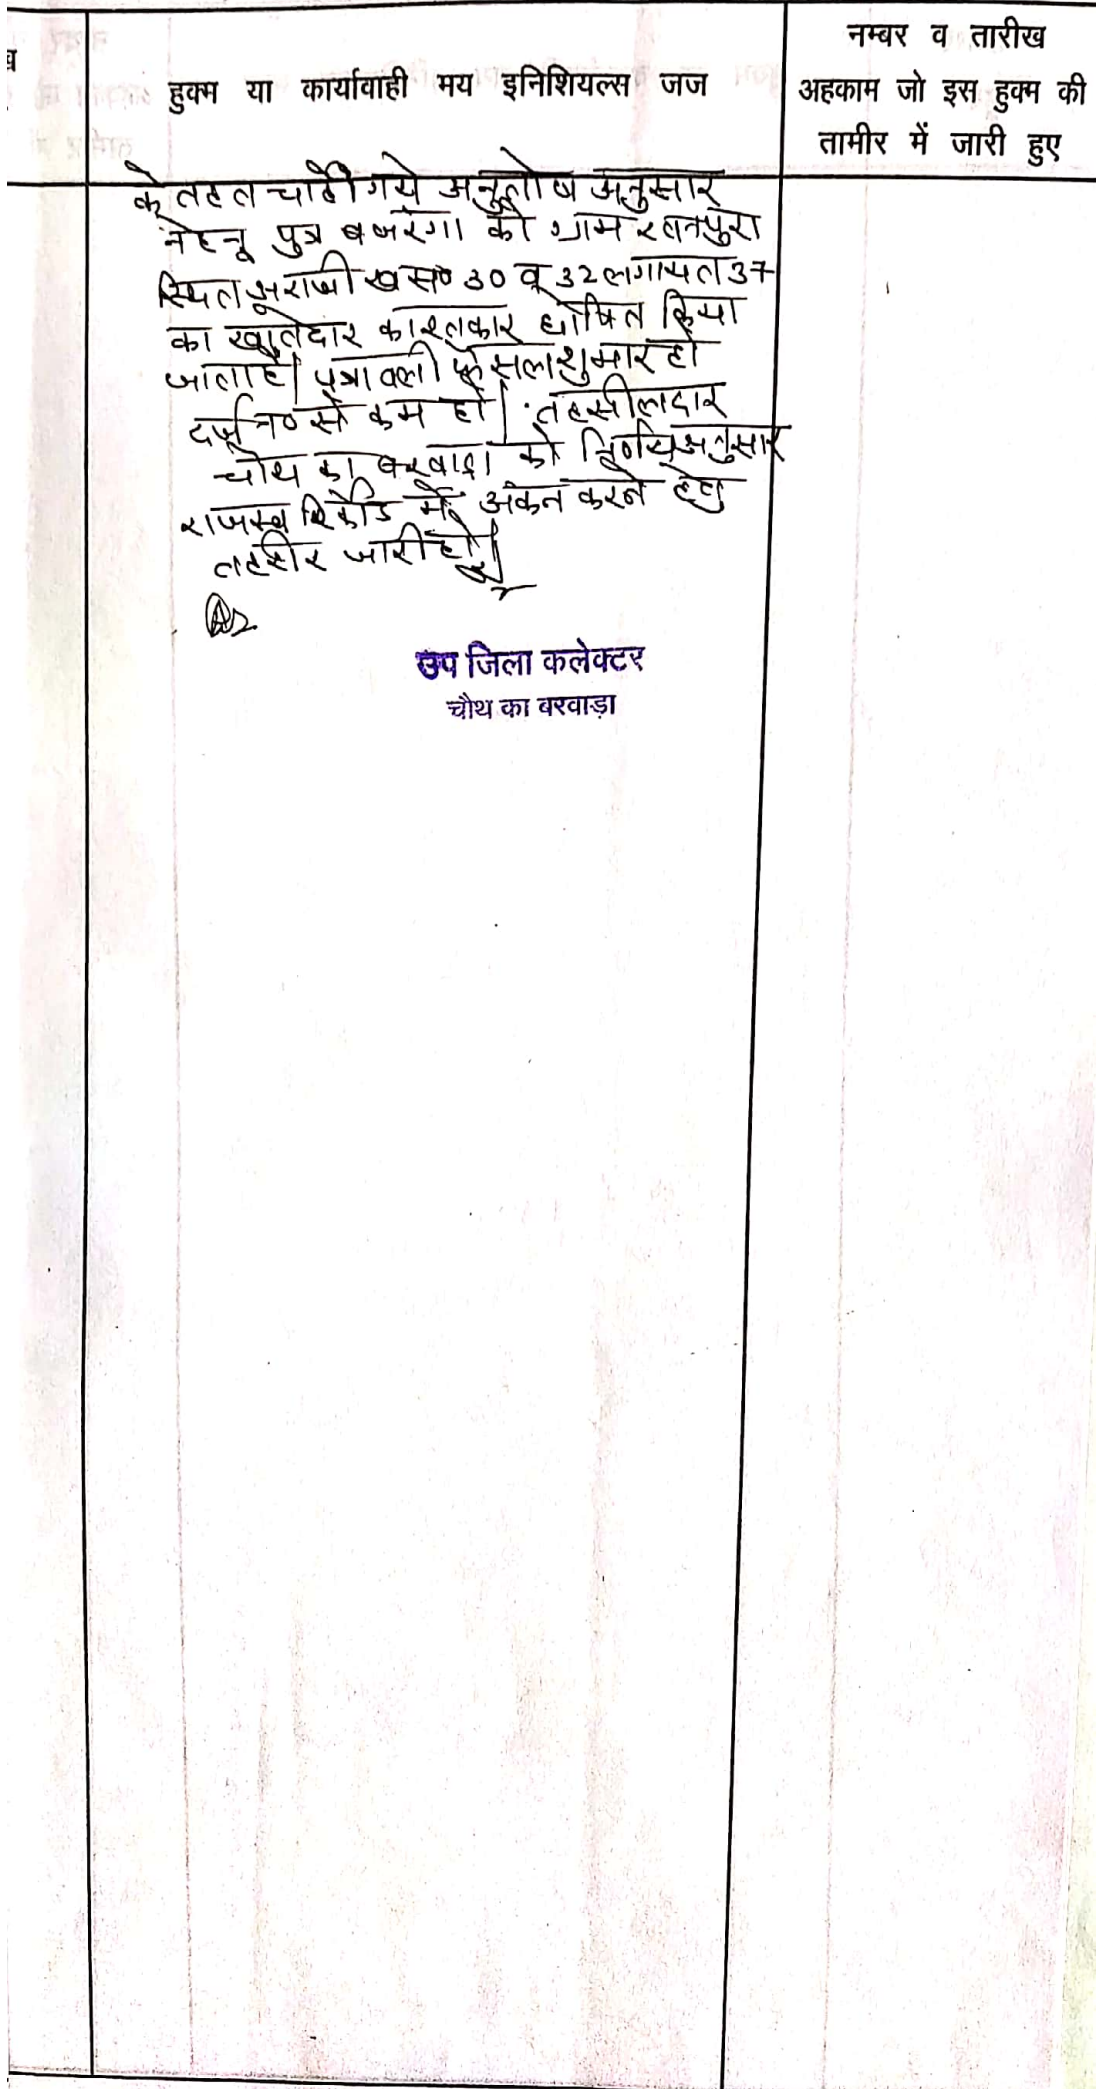 ब
हुक्म या कार्यावाही मय इनिशियल्स जज
नम्बर व तारीख
अहकाम जो इस हुक्म की
तामीर में जारी हुए
के तहत चाही गये अनुतोष अनुसार
पुत्र बजरंगा को ग्राम रतनपुरा
स्थित आराजी ख स० 30 व 32 लगायत 37
का खातेदार काश्तकार घोषित किया
जाता है। पत्रावली फैसल शुमार हो
दर्ज न० से कम हो। तहसीलदार
चौथ का बरवाडा को निर्णय अनुसार
राजस्व रिकॉर्ड में अंकन करने हेतु
तहरीर जारी हो।
उप जिला कलेक्टर
चौथ का बरवाड़ा